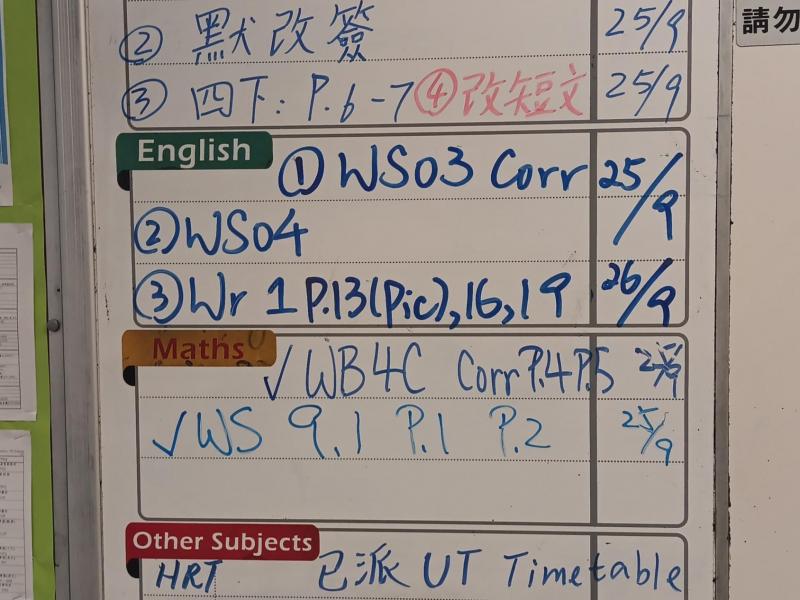 ② 默改簽 25/9
請勿
③ 四下: P.6-7 ④改短文 25/9
English
① WS03 Corr 25/9
② WS04
③ Wr 1 P.13(Pic),16,19 26/9
Maths
✓ WB4C Corr P.4 P.5
✓ WS 9.1 P.1 P.2 25/9
Other Subjects
HRT 已派 UT Timetable